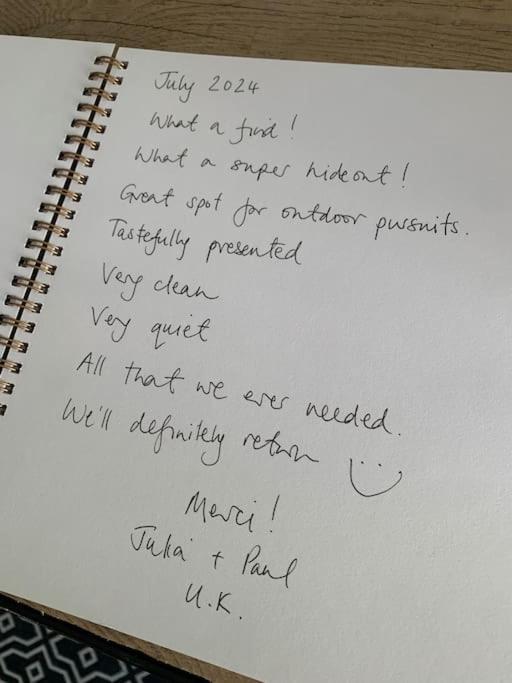 July 2024
What a find!
What a super hideout!
Great spot for outdoor pursuits.
Tastefully presented
Very clean
Very quiet
All that we ever needed.
We'll definitely return :)
Merci!
Julia + Paul
U.K.